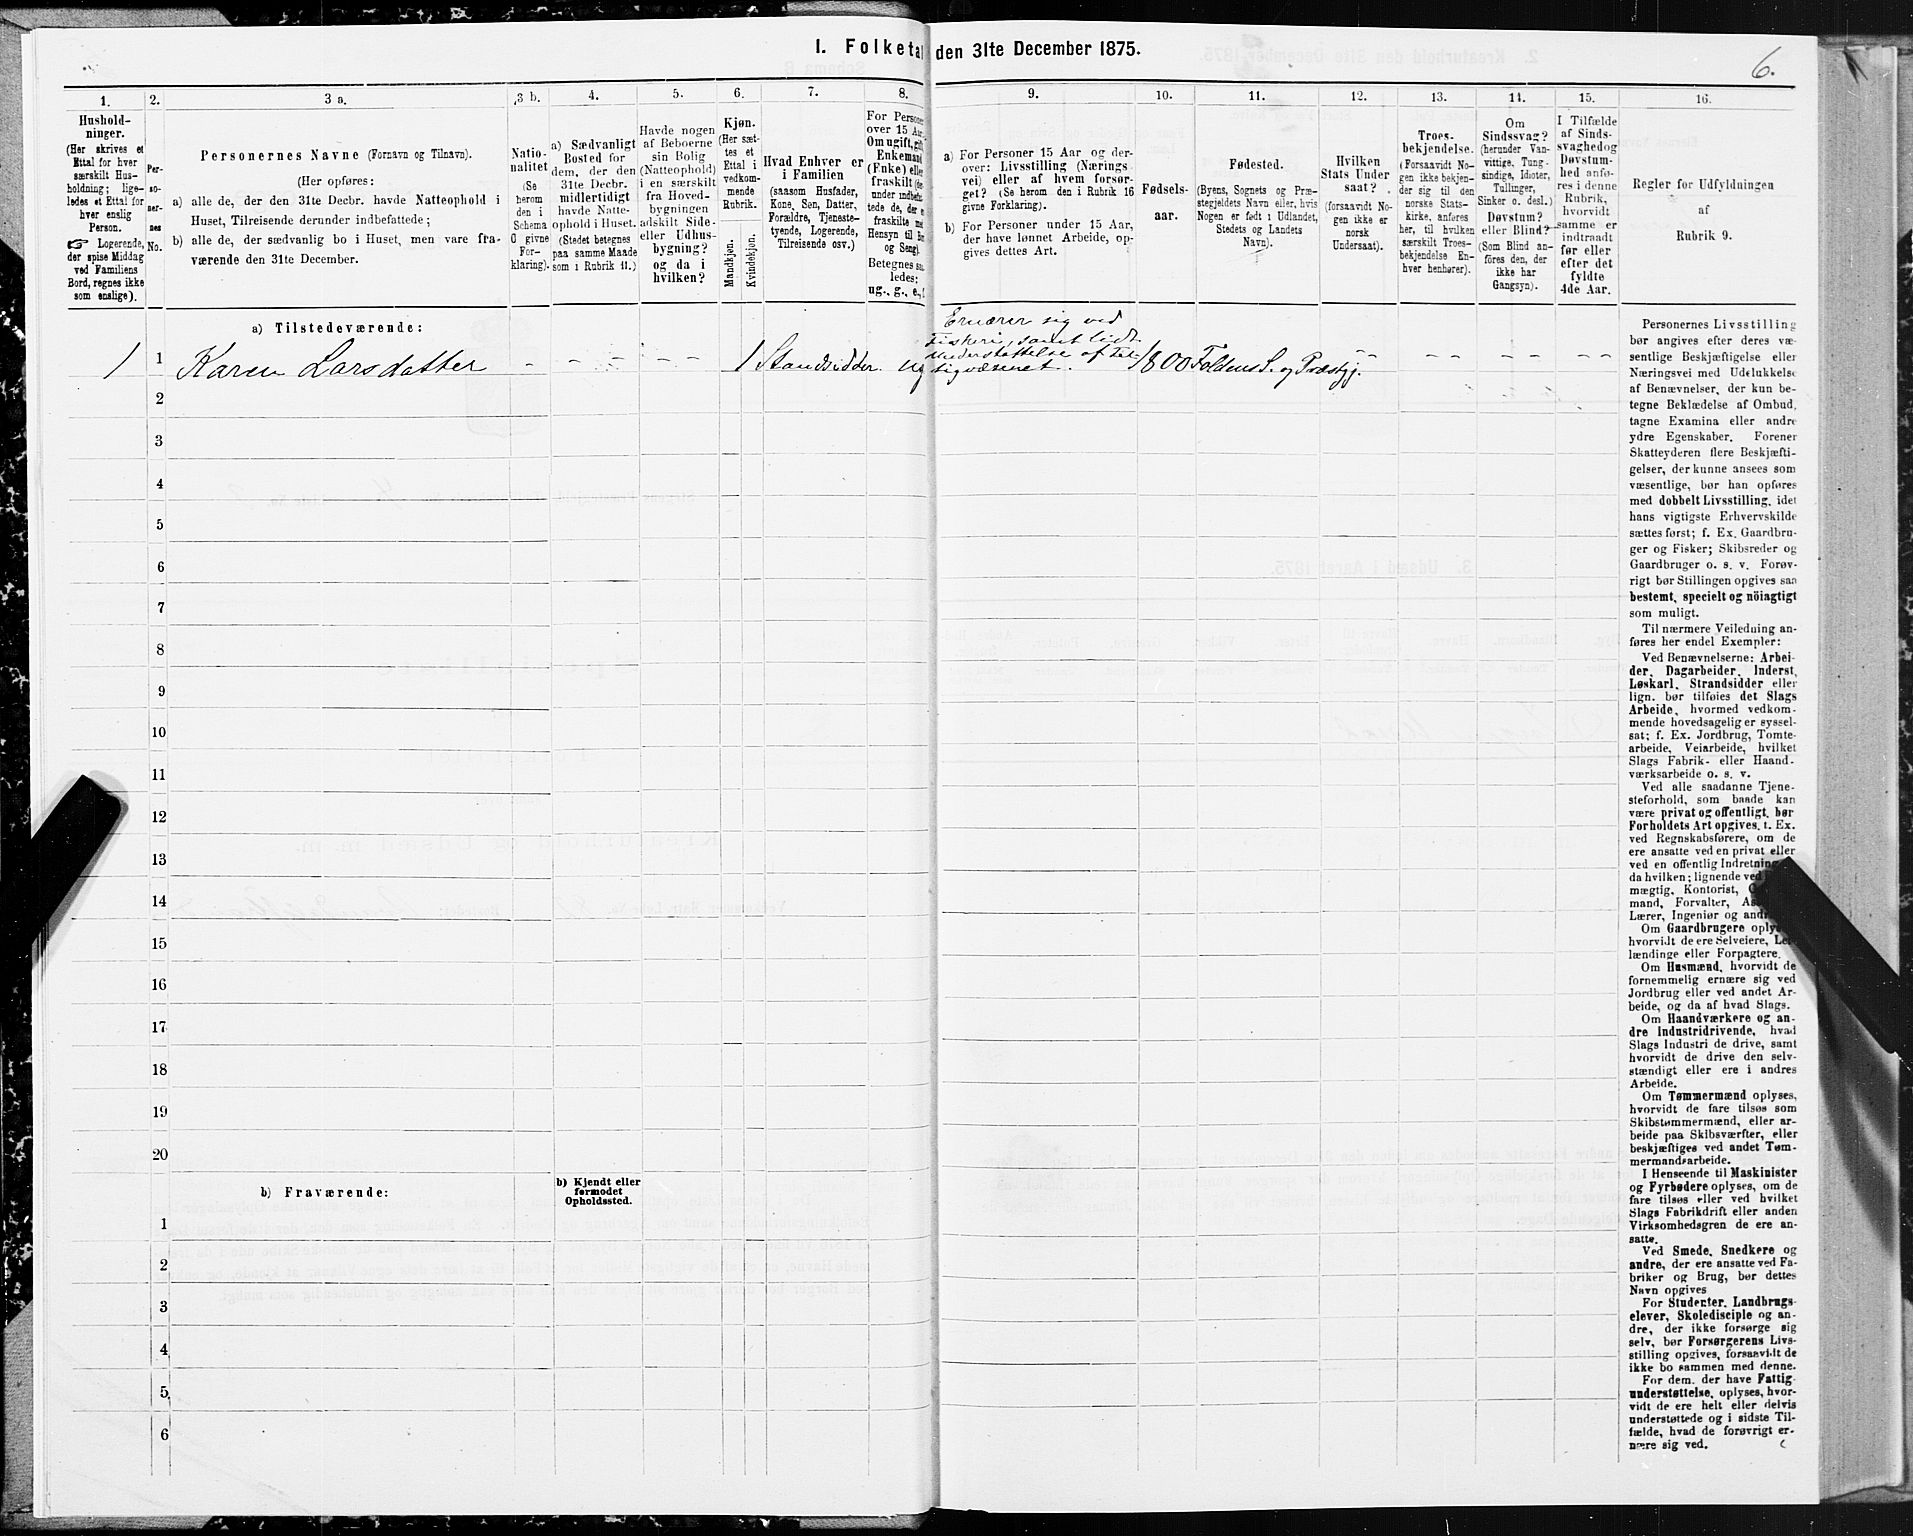 I. Folketal den 31te December 1875.
6.
1.
2.
3 a.
3 b.
4.
5.
6.
7.
8.
9.
10.
11.
12.
13.
14.
15.
16.
Hushold-
ninger.
(Her skrives et
Ettal for hver
særskilt Hus-
holdning; lige-
ledes et Ettal for
hver enslig
Person.
☞ Logerende,
der spise Middag
ved Familiens
Bord, regnes ikke
som enslige).
Per-
so-
ner-
nes
No.
Personernes Navne (Fornavn og Tilnavn).
(Her opføres:
a) alle de, der den 31te Decbr. havde Natteophold i
Huset, Tilreisende derunder indbefattede;
b) alle de, der sædvanlig bo i Huset, men vare fra-
værende den 31te December.
Natio-
nalitet
(Se
herom
den i
Schema
O givne
For-
klaring).
a) Sædvanligt
Bosted for
dem, der den
31te Decbr.
midlertidigt
havde Natte-
ophold i Huset.
(Stedet betegnes
paa samme Maade
som i Rubrik 11.)
Havde nogen
af Beboerne
sin Bolig
(Natteophold)
i en særskilt
fra Hoved-
bygningen
adskilt Side-
eller Udhus-
bygning?
og da i
hvilken?
Kjøn.
(Her sæt-
tes et
Ettal i
vedkom-
mende
Rubrik.
Mandkjøn.
Kvindekjøn.
Hvad Enhver er
i Familien
(saasom Husfader,
Kone, Søn, Datter,
Forældre, Tjeneste-
tyende, Logerende,
Tilreisende osv.)
For Personer
over 15 Aar
Om ugift, gift,
Enkemand
(Enke) eller
fraskilt (der-
under indbefat-
tede de, der ere
fraskilte med
Hensyn til Bord
og Seng).
Betegnes saa-
ledes:
ug., g., e., f.
a) For Personer 15 Aar og der-
over: Livsstilling (Nærings-
vei) eller af hvem forsør-
get? (Se herom den i Rubrik 16
givne Forklaring).
b) For Personer under 15 Aar,
der have lønnet Arbeide, op-
gives dettes Art.
Fødsels-
aar.
Fødested.
(Byens, Sognets og Præ-
stegjeldets Navn eller, hvis
Nogen er født i Udlandet,
Stedets og Landets
Navn).
Hvilken
Stats Under
saat?
(forsaavidt No-
gen ikke er
norsk
Undersaat).
Troes-
bekjendelse.
(Forsaavidt No-
gen ikke bekjen-
der sig til den
norske Stats-
kirke, anføres
her, til hvilken
særskilt Troes-
bekjendelse En-
hver henhører).
Om
Sindssvag?
(herunder Van-
vittige, Tung-
sindige, Idioter,
Tullinger,
Sinker o. desl.)
Døvstum?
eller Blind?
(Som Blind an-
føres den, der
ikke har
Gangsyn).
I Tilfælde
af Sinds-
svaghedog
Døvstum-
hed anfø-
res i denne
Rubrik,
hvorvidt
samme er
indtraadt
før eller
efter det
fyldte
4de Aar.
Regler for Udfyldningen
af
Rubrik 9.
a) Tilstedeværende:
1 1 Karen Larsdatter - - - - - - - 1 Standsidder ug Ernærer sig ved
Fiskeri, samt lidt
Understøttelse af Fat-
tigvæsenet. 1800 Foldens S. og Præstgj. - - - - - - - -
2
3
4
5
6
7
8
9
10
11
12
13
14
15
16
17
18
19
20
b) Fraværende:
b) Kjendt eller
formodet
Opholdssted.
1
2
3
4
5
6
Personernes Livsstilling
bør angives efter deres væ-
sentlige Beskjæftigelse eller
Næringsvei med Udelukkelse
af Benævnelser, der kun be-
tegne Beklædelse af Ombud,
tagne Examina eller andre
ydre Egenskaber. Forener
Skatteyderen flere Beskjæfti-
gelser, der kunne ansees som
væsentlige, bør han opføres
med dobbelt Livsstilling, idet
hans vigtigste Erhvervskilde
sættes først; f. Ex. Gaardbru-
ger og Fisker; Skibsreder og
Gaardbruger o. s. v. Forøv-
rigt bør Stillingen opgives saa
bestemt, specielt og nöiagtigt
som muligt.
Til nærmere Veiledning an-
føres her endel Exempler:
Ved Benævnelserne: Arbei-
der, Dagarbeider, Inderst,
Løskarl, Strandsidder eller
lign. bør tilføies det Slags
Arbeide, hvormed vedkom-
mende hovedsagelig er syssel-
sat; f. Ex. Jordbrug, Tomte-
arbeide, Veiarbeide, hvilket
Slags Fabrik- eller Haand-
værksarbeide o. s. v.
Ved alle saadanne Tjene-
steforhold, som baade kan
være privat og offentligt, bør
Forholdets Art opgives, t. Ex.
ved Regnskabsførere, om de
ere ansatte ved en privat eller
ved en offentlig Indretning
da hvilken; lignende ved
mægtig, Kontorist,
mand, Forvalter,
Lærer, Ingeniør og
Om Gaardbrugere
hvorvidt de ere Selveiere,
lændinge eller Forpagtere.
Om Husmænd, hvorvidt de
fornemmelig ernære sig ved
Jordbrug eller ved andet Ar-
beide, og da af hvad Slags.
Om Haandværkere og an-
dre Industridrivende, hvad
Slags Industri de drive, samt
hvorvidt de drive den selv-
stændigt eller ere i andres
Arbeide.
Om Tømmermænd oplyses,
hvorvidt de fare tilsøs som
Skibstømmermænd, eller ar-
beide paa Skibsværfter, eller
beskjæftiges ved andet Tøm-
mermandsarbeide.
I Henseende til Maskinister
og Fyrbødere oplyses, om de
fare tilsøs eller ved hvilket
Slags Fabrikdrift eller anden
Virksomhedsgren de ere an-
satte.
Ved Smede, Snedkere og
andre, der ere ansatte ved Fa-
briker og Brug, bør dettes
Navn opgives
For Studenter, Landbrugs-
elever, Skoledisciple og an-
dre, der ikke forsørge sig
selv, bør Forsørgerens Livs-
stilling opgives, forsaavidt de
ikke bo sammen med denne.
For dem, der have Fattig-
understøttelse, oplyses, hvor-
vidt de ere helt eller delvis
understøttede og i sidste Til-
fælde, hvad de forøvrigt er-
nære sig ved.